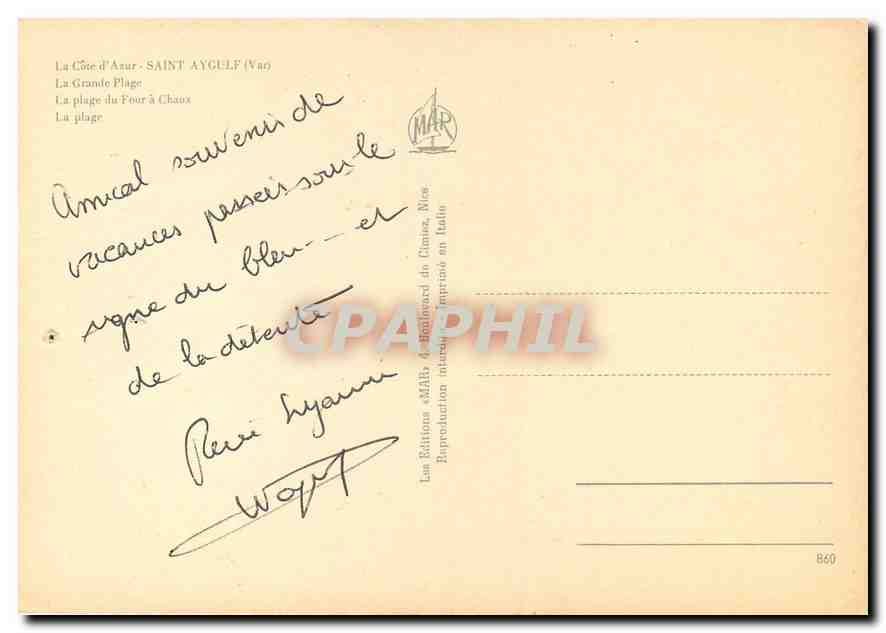 La Côte d'Azur - SAINT AYGULF (Var)
La Grande Plage
La plage du Four à Chaux
La plage
MAR
Amical souvenir de
vacances passées sous le
signe du bleu--- et
de la détente
René
Les Editions «MAR» 4, Boulevard de Cimiez, Nice
Reproduction interdite - Imprimé en Italie
CPAPHIL
860